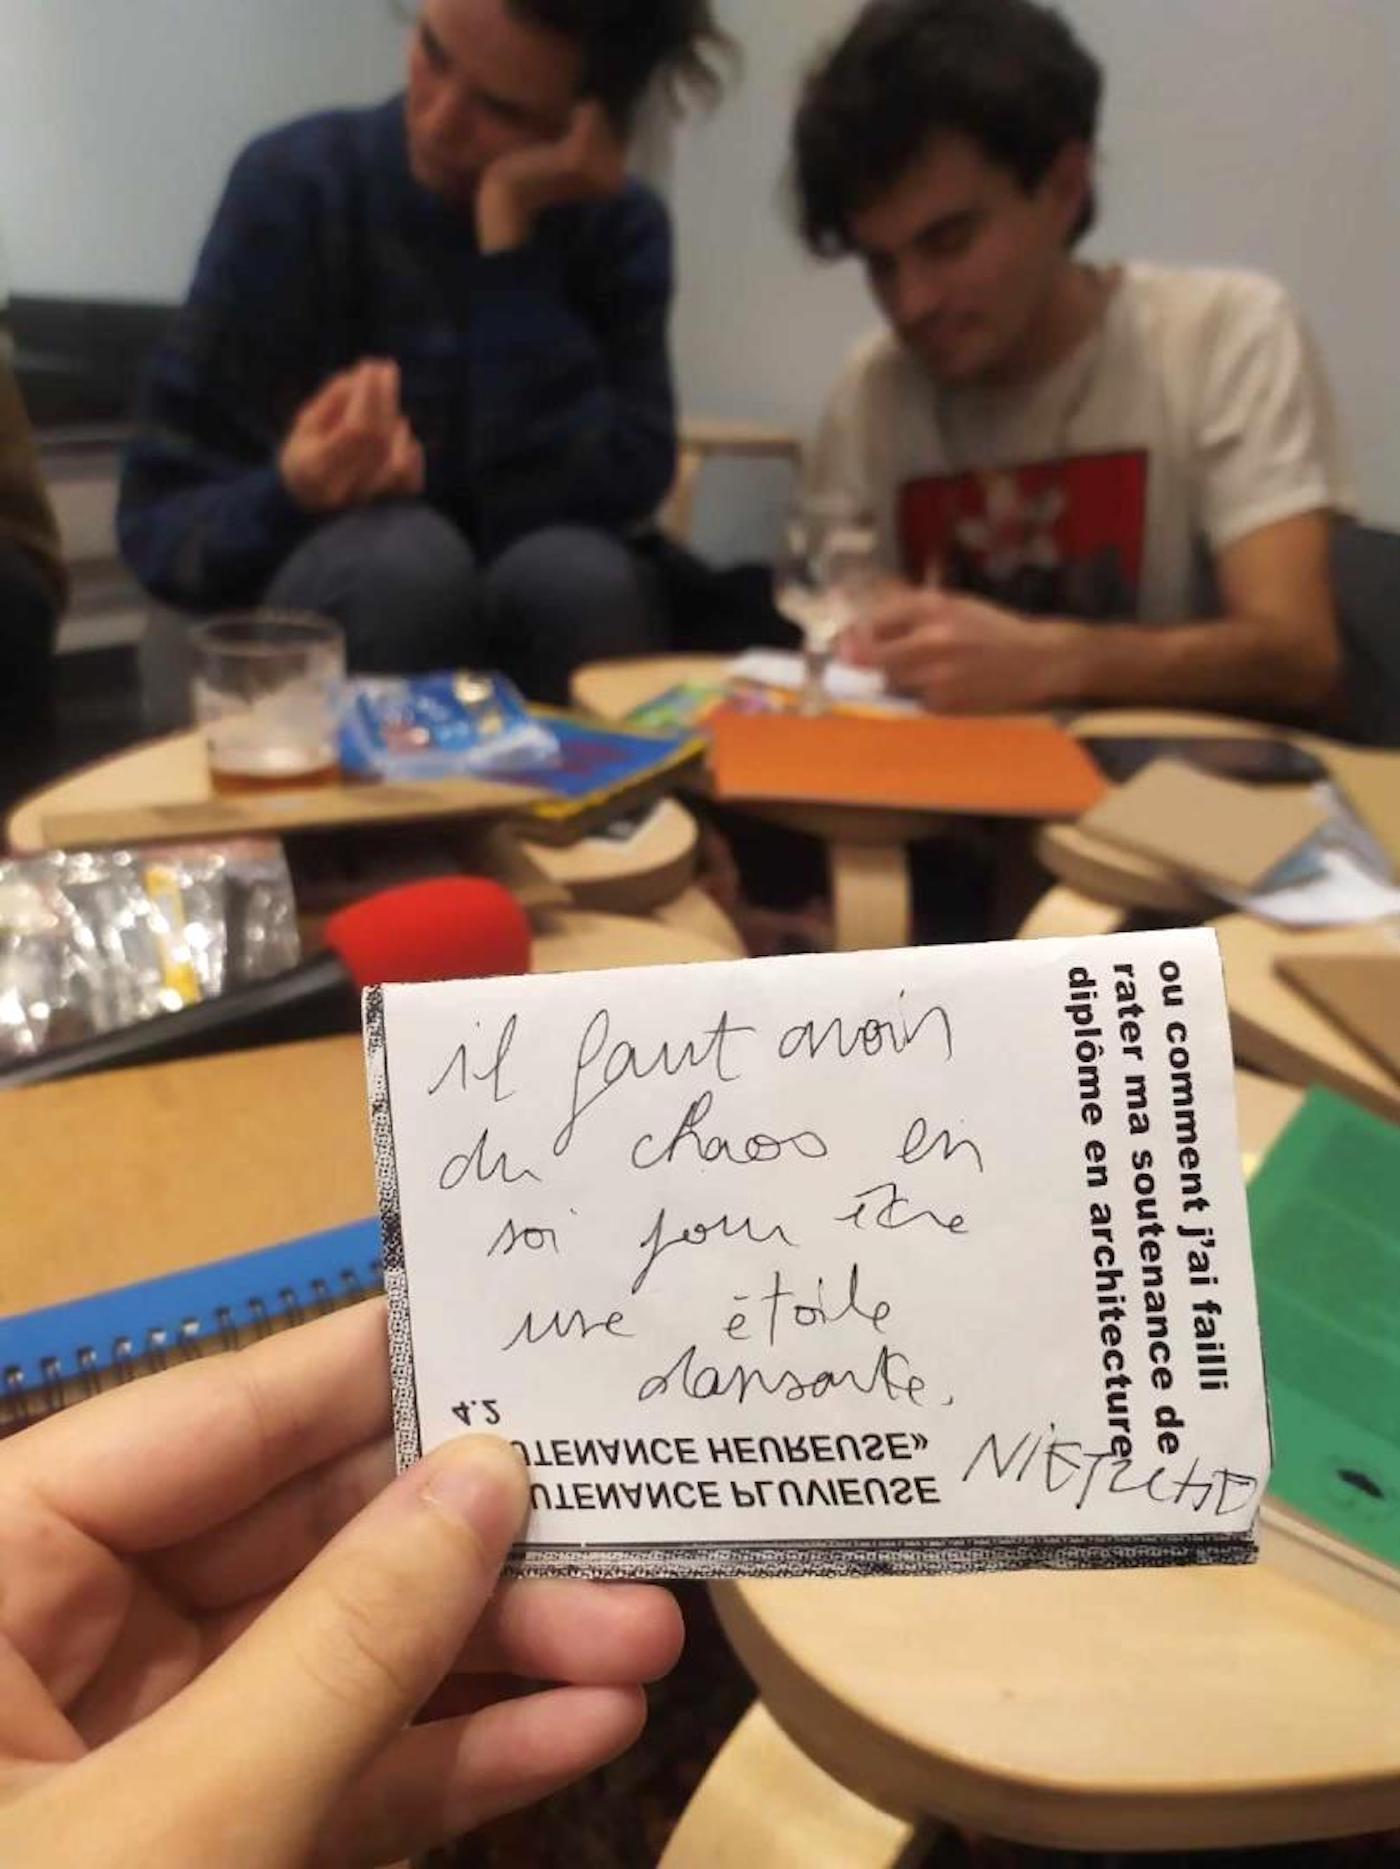 il faut avoir
du chaos en
soi pour être
une étoile
dansante.
NIETZCHE
ou comment j'ai failli
rater ma soutenance de
diplôme en architecture
UTENANCE PLUVIEUSE
UTENANCE HEUREUSE»
4.2